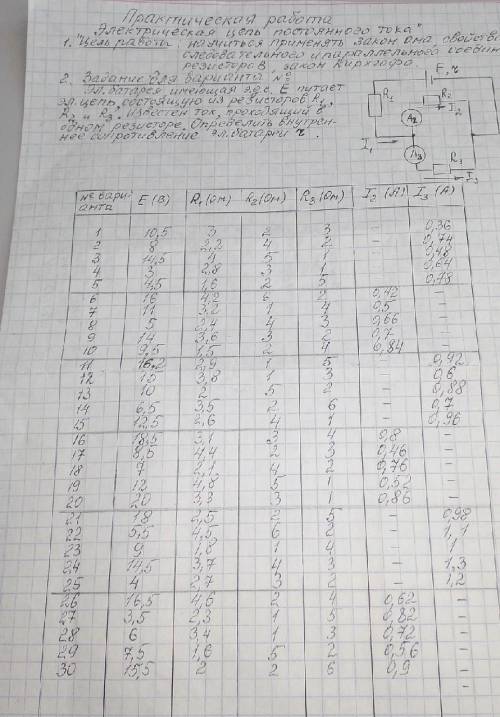 Практическая работа
"Электрическая цепь постоянного тока"
1. Цель работы: научиться применять закон ома, свойства
последовательного и параллельного соедин
резисторов, закон Кирхгофа.
2. Задание для варианта №
Эл. батарея имеющая э.д.с. E питает
эл. цепь, состоящую из резисторов R1,
R2 и R3. Известен ток, проходящий в
одном резисторе. Определить внутрен-
нее сопротивление эл. батареи r.
E, r
R1
R2
A2
I2
I1
A3
R3
I3
№ вари-анта E(В) R1(Ом) R2(Ом) R3(Ом) I2(А) I3(А)
1 10,5 3 2 3 - 0,36
2 8 2,2 4 2 - 0,74
3 14,5 4 5 1 - 0,48
4 3 2,8 3 1 - 0,64
5 4,5 1,6 2 5 - 0,78
6 16 4,2 6 2 0,42 -
7 11 3,2 1 4 0,5 -
8 5 2,4 4 3 0,66 -
9 14 3,6 3 2 0,7 -
10 9,5 1,5 2 4 0,84 -
11 16,2 2,9 1 5 - 0,42
12 13 3,8 1 3 - 0,6
13 10 2 5 2 - 0,88
14 6,5 3,5 2 6 - 0,7
15 12,5 2,6 4 1 - 0,96
16 18,5 3,1 3 4 0,8 -
17 8,5 4,4 2 3 0,46 -
18 7 2,1 4 2 0,76 -
19 12 4,8 5 1 0,52 -
20 20 3,3 3 1 0,86 -
21 18 2,5 2 5 - 0,98
22 5,5 4,5 6 2 - 1,1
23 9 1,8 1 4 - 1
24 14,5 3,7 4 3 - 1,3
25 4 2,7 3 2 - 1,2
26 16,5 4,6 2 4 0,62 -
27 3,5 2,3 1 5 0,82 -
28 6 3,4 1 3 0,72 -
29 7,5 1,6 5 2 0,56 -
30 15,5 2 2 6 0,9 -